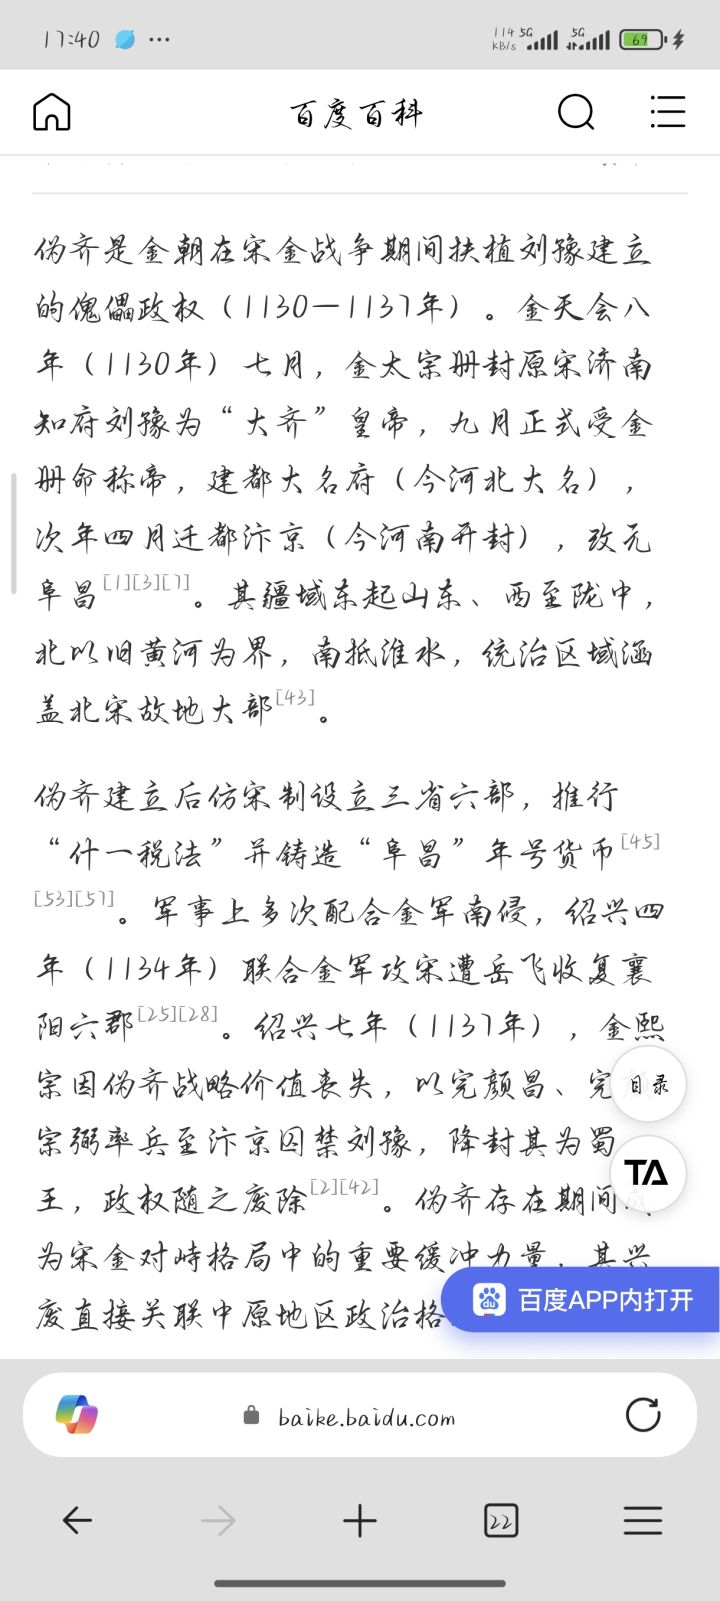 17:40
114 KB/s 5G 5G 69
百度百科
伪齐是金朝在宋金战争期间扶植刘豫建立
的傀儡政权（1130—1137年）。金天会八
年（1130年）七月，金太宗册封原宋济南
知府刘豫为“大齐”皇帝，九月正式受金
册命称帝，建都大名府（今河北大名），
次年四月迁都汴京（今河南开封），改元
阜昌[1][3][7]。其疆域东起山东、西至陇中，
北以旧黄河为界，南抵淮水，统治区域涵
盖北宋故地大部[43]。
伪齐建立后仿宋制设立三省六部，推行
“什一税法”并铸造“阜昌”年号货币[45]
[53][57]。军事上多次配合金军南侵，绍兴四
年（1134年）联合金军攻宋遭岳飞收复襄
阳六郡[25][28]。绍兴七年（1137年），金熙
宗因伪齐战略价值丧失，以完颜昌、完
目录
宗弼率兵至汴京囚禁刘豫，降封其为蜀
TA
王，政权随之废除[2][42]。伪齐存在期间
为宋金对峙格局中的重要缓冲力量，其兴
废直接关联中原地区政治格
百度APP内打开
baike.baidu.com
22